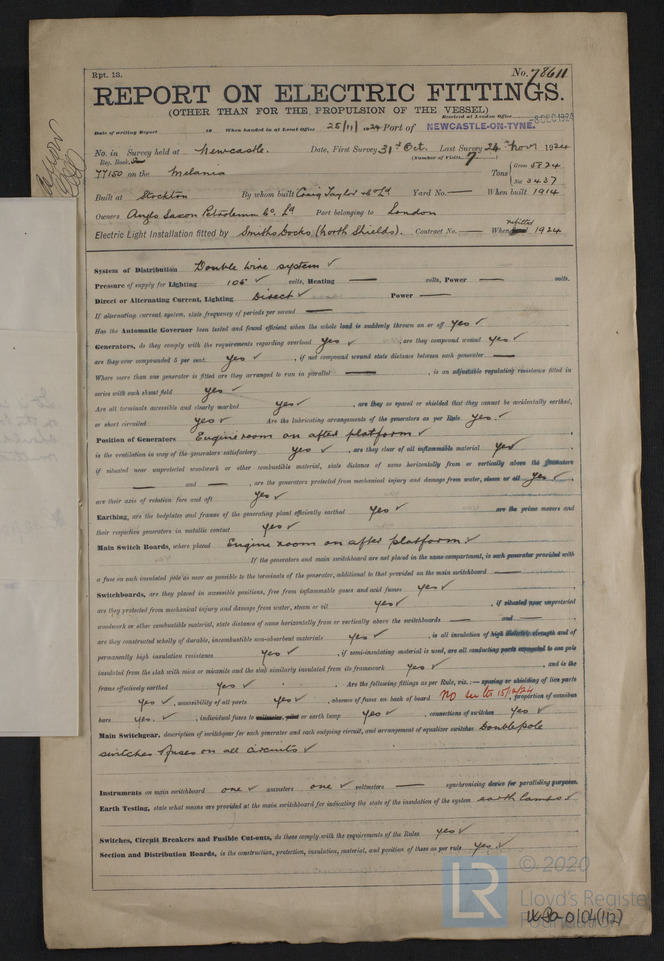 Rpt. 13.
No. 78611
REPORT ON ELECTRIC FITTINGS.
(OTHER THAN FOR THE PROPULSION OF THE VESSEL)
Received at London Office
Date of writing Report 19 When handed in at Local Office 25/11/1924 Port of NEWCASTLE-ON-TYNE.
No. in Survey held at Newcastle. Date, First Survey 31st Oct. Last Survey 24 Nov 1924
Reg. Book. (Number of Visits 7)
77150 on the Melania Tons { Gross 5824
Net 3437
Built at Stockton By whom built Craig Taylor & Co Ld Yard No. — When built 1914
Owners Anglo Saxon Petroleum Co. Ld Port belonging to London
Electric Light Installation fitted by Smiths Docks (North Shields). Contract No. — When refitted 1924
System of Distribution Double wire system ✓
Pressure of supply for Lighting 105 ✓ volts, Heating — volts, Power — volts.
Direct or Alternating Current, Lighting Direct ✓ Power —
If alternating current system, state frequency of periods per second —
Has the Automatic Governor been tested and found efficient when the whole load is suddenly thrown on or off yes ✓
Generators, do they comply with the requirements regarding overload yes ✓, are they compound wound yes ✓
are they over compounded 5 per cent. yes ✓, if not compound wound state distance between each generator —
Where more than one generator is fitted are they arranged to run in parallel —, is an adjustable regulating resistance fitted in
series with each shunt field yes ✓
Are all terminals accessible and clearly marked yes ✓, are they so spaced or shielded that they cannot be accidentally earthed,
or short circuited yes ✓ Are the lubricating arrangements of the generators as per Rule yes. ✓
Position of Generators Engine room on after platform ✓
is the ventilation in way of the generators satisfactory yes ✓, are they clear of all inflammable material yes ✓
if situated near unprotected woodwork or other combustible material, state distance of same horizontally from or vertically above the generators
— and —, are the generators protected from mechanical injury and damage from water, steam or oil yes ✓,
are their axis of rotation fore and aft yes ✓
Earthing, are the bedplates and frames of the generating plant efficiently earthed yes ✓ are the prime movers and
their respective generators in metallic contact yes ✓
Main Switch Boards, where placed Engine room on after platform. ✓
If the generators and main switchboard are not placed in the same compartment, is each generator provided with
a fuse on each insulated pole as near as possible to the terminals of the generator, additional to that provided on the main switchboard —
Switchboards, are they placed in accessible positions, free from inflammable gases and acid fumes yes ✓
are they protected from mechanical injury and damage from water, steam or oil yes ✓, if situated near unprotected
woodwork or other combustible material, state distance of same horizontally from or vertically above the switchboards — and —
are they constructed wholly of durable, incombustible non-absorbent materials yes ✓, is all insulation of high dielectric strength and of
permanently high insulation resistance yes ✓, if semi-insulating material is used, are all conducting parts connected to one pole
insulated from the slab with mica or micanite and the slab similarly insulated from its framework yes ✓, and is the
frame effectively earthed yes ✓. Are the following fittings as per Rule, viz.:— spacing or shielding of live parts
yes ✓, accessibility of all parts yes ✓, absence of fuses on back of board No 15/12/24, proportion of omnibus
bars yes. ✓, individual fuses to or earth lamp yes ✓, connections of switches yes ✓
Main Switchgear, description of switchgear for each generator and each outgoing circuit, and arrangement of equalizer switches Double pole
switches & fuses on all circuits ✓
Instruments on main switchboard one ✓ ammeters one ✓ voltmeters — synchronising device for paralleling purposes.
Earth Testing, state what means are provided at the main switchboard for indicating the state of the insulation of the system earth lamps ✓
Switches, Circuit Breakers and Fusible Cut-outs, do these comply with the requirements of the Rules yes ✓
Section and Distribution Boards, is the construction, protection, insulation, material, and position of these as per rule yes. ✓
LR
© 2020
Lloyd's Register
Foundation